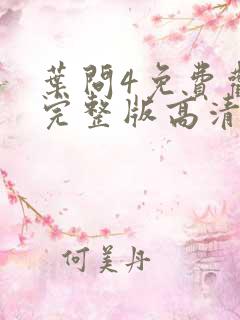 葉問4免費
完整版高清
何美丹